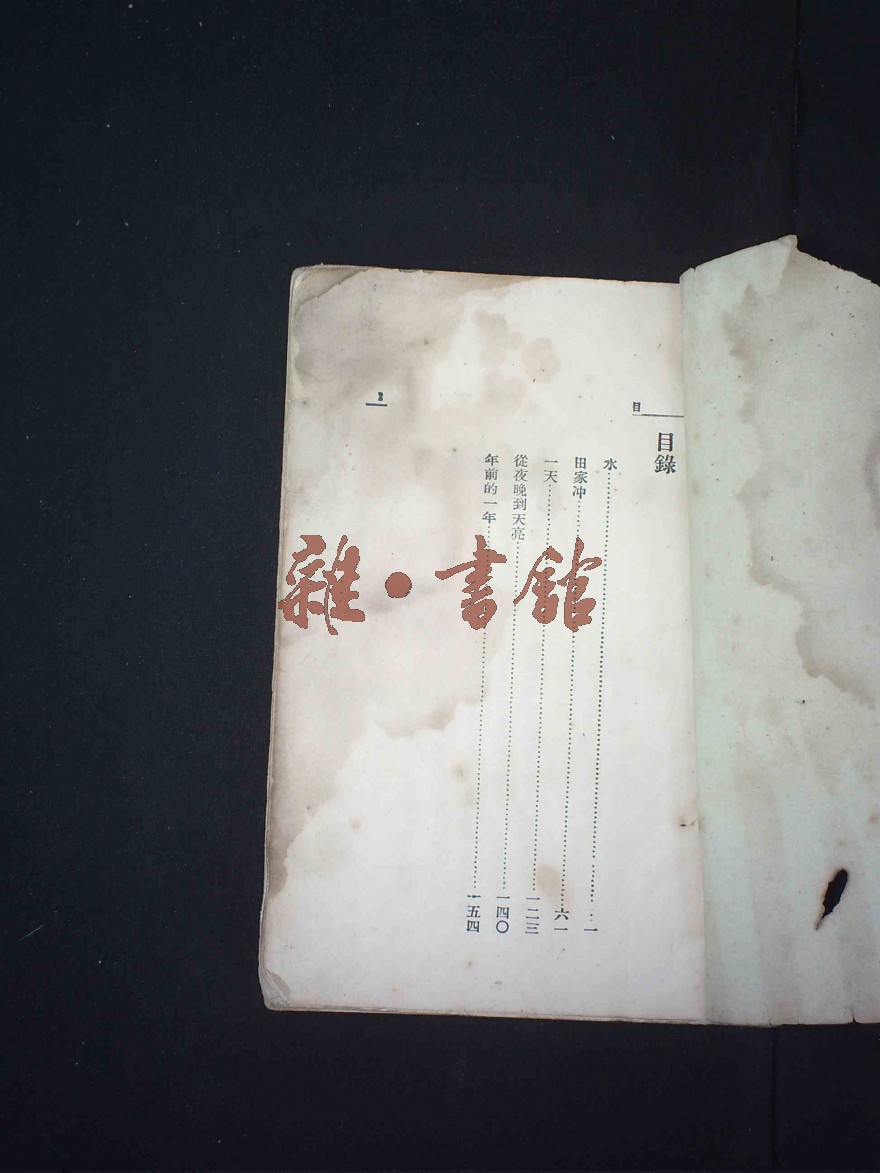 目
目錄
水……一
田家冲……六一
一天……一二三
從夜晚到天亮……一四〇
年前的一年……一五四
雜·書館